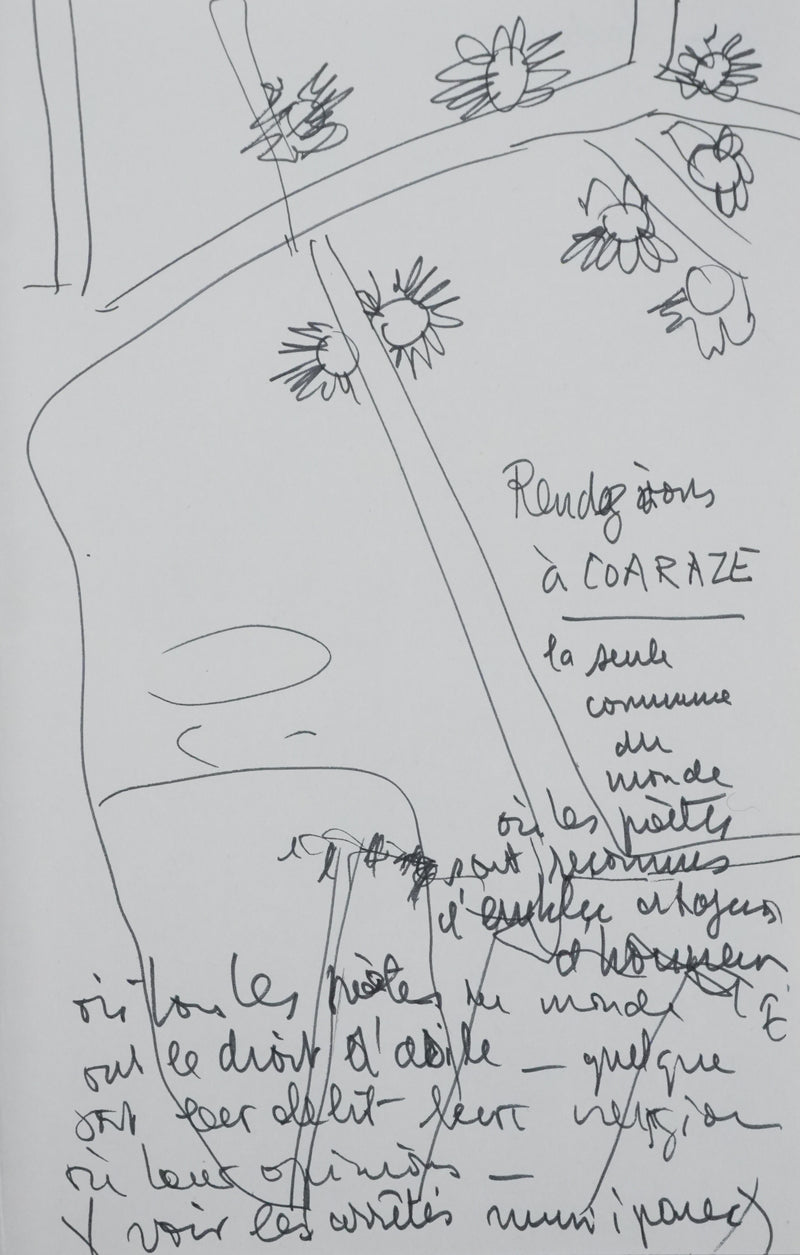 Rendez vous
à COARAZE
la seule
commune
du
monde
où les poètes
sont reconnus
d'emblée citoyens
d'honneur
où tous les poètes du monde
ont le droit d'asile _ quelque
soit leur délit leur religion
où leurs opinions _
( voir les arrêtés municipaux )